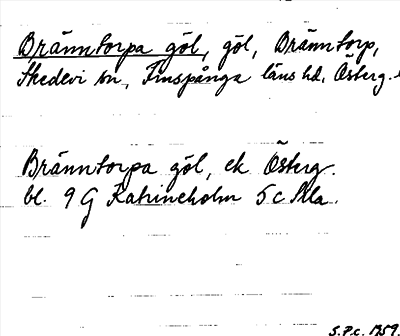 Bränntorpa göl, göl, Bränntorp,
Skedevi sn, Finspånga läns hd, Österg.
Bränntorpa göl, ek Österg.
bl. 9 G Katrineholm 5 c Sk
S.P.c. 1959.